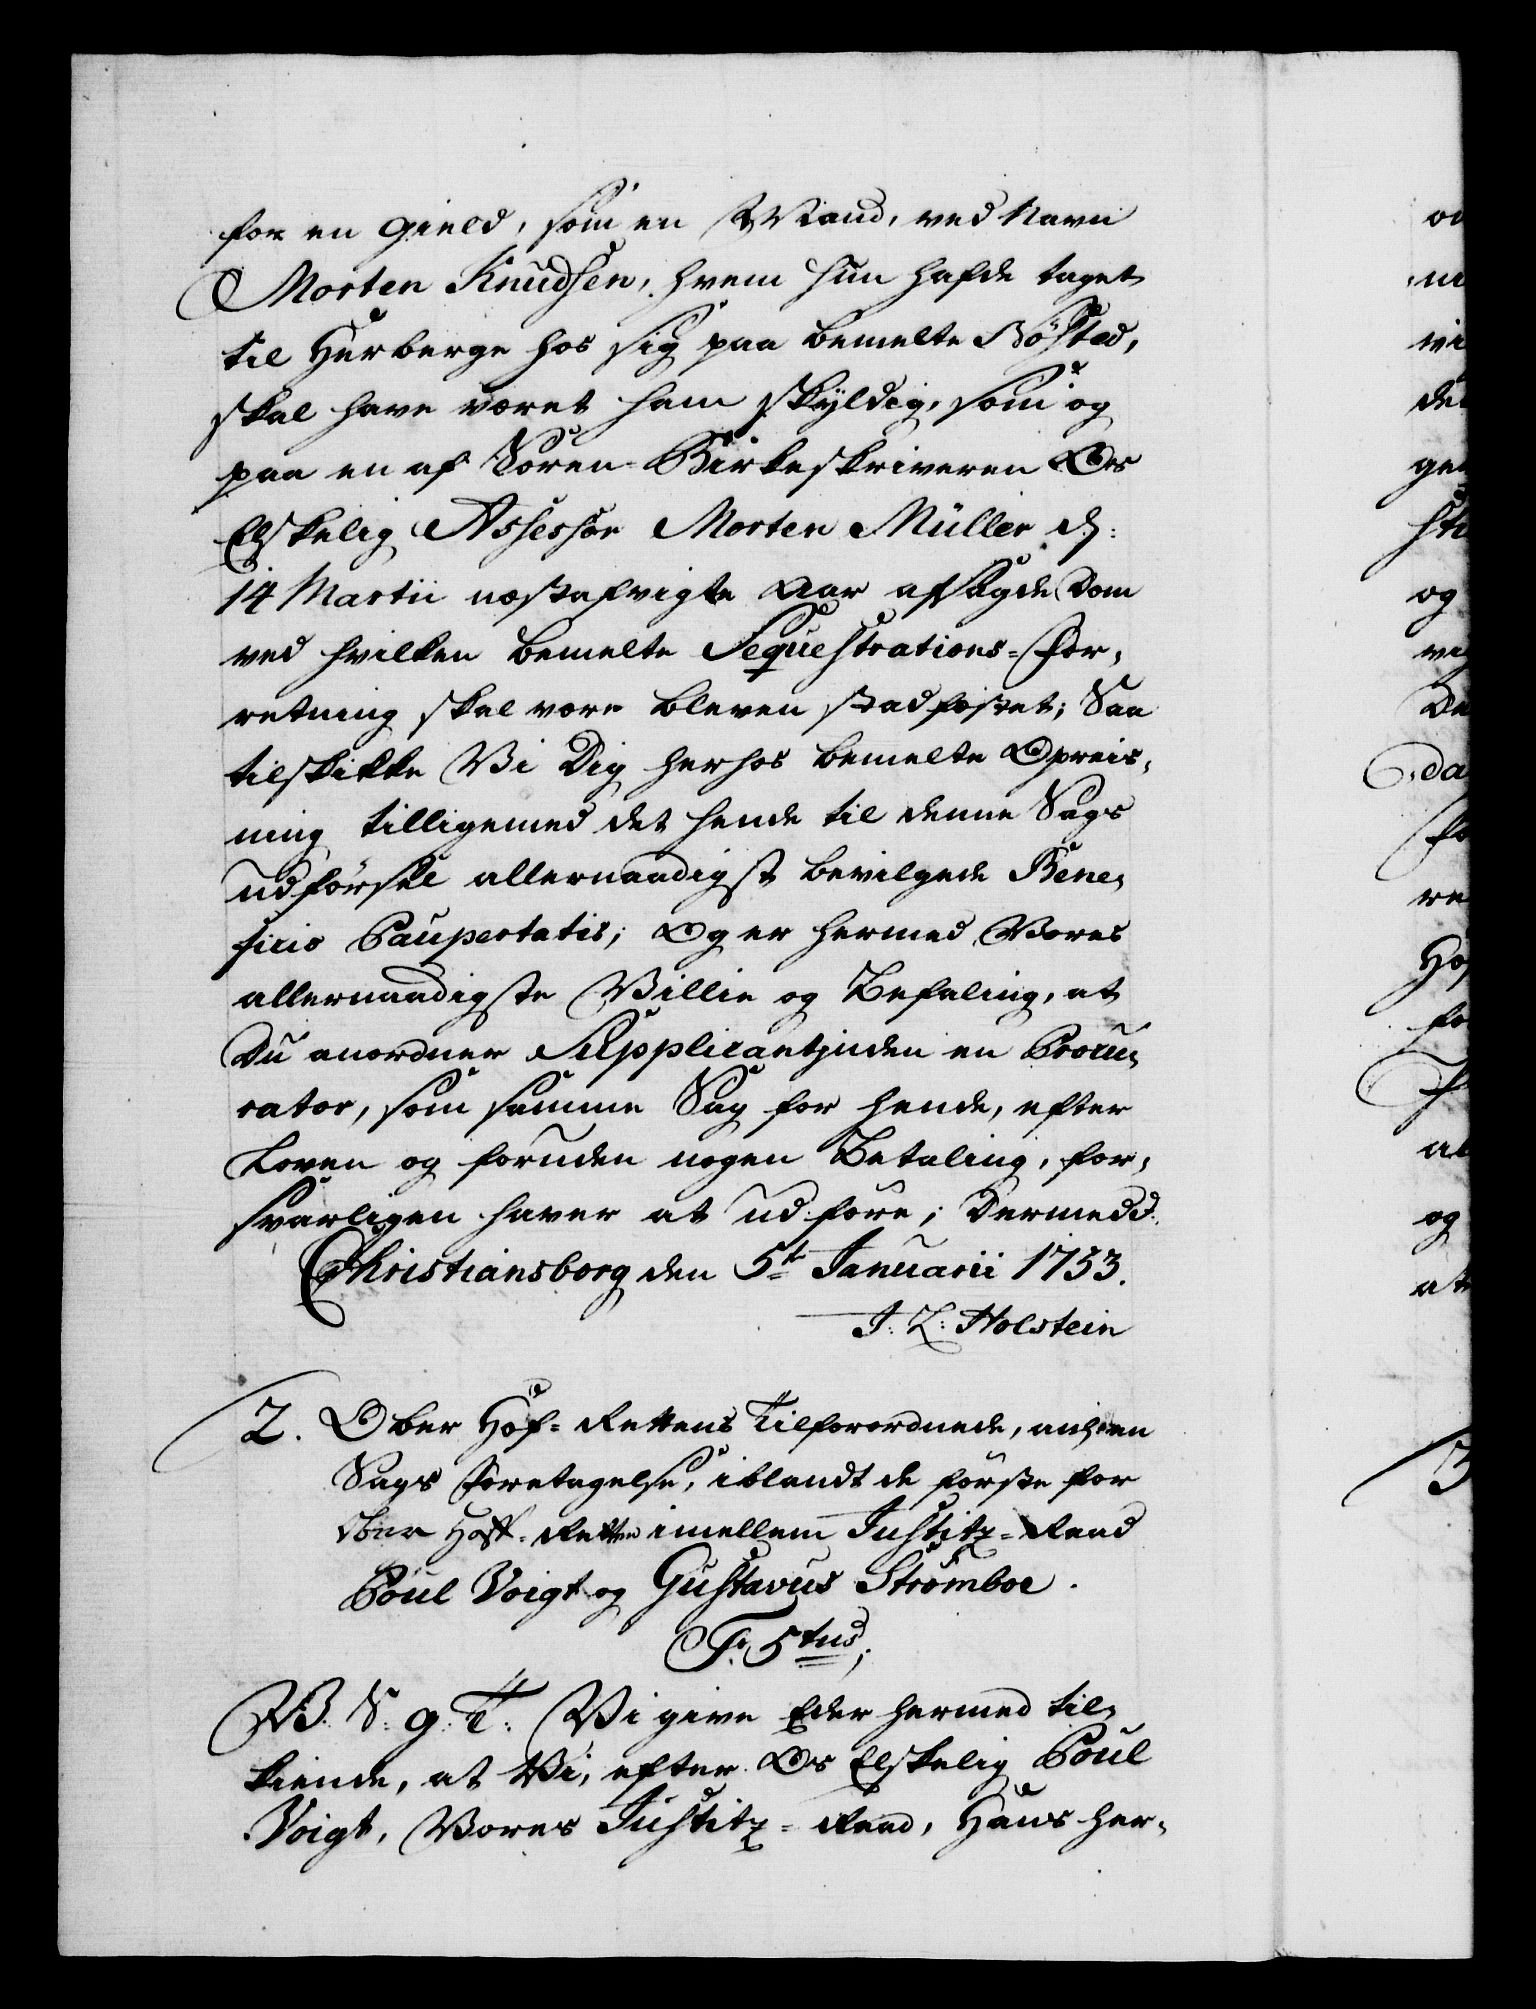 for en Gield, som en Mand, ved Navn
Morten Knudsen, hvem hun hafde taget
til Herberge hos sig paa bemelte Bösted,
skal have været ham skyldig, som og
paa en af Soren Birkeskriveren Os
Elskelig Assessor Morten Müller d:
14 Martii næstafvigte Aar afsagde Dom
ved hvilken bemelte Sequestrations-For-
retning skal være bleven stadfæstet; Saa
tilskikke Vi Dig herhos bemelte Opreis-
ning tilligemed det hende til denne Sags
udförsel allernaadigst bevilgede Bene-
ficio Paupertatis; Og er hermed Vores
allernaadigste Villie og Befaling, at
Du anordner Supplicantinden en Procu-
rator, som samme Sag for hende, efter
Loven og foruden nogen Betaling, for-
svarligen haver at udföre; Dermed d:
Christiansborg den 5t Januarii 1753.
J: L: Holstein
2. Ober Hof-Rettens Tilforordnede, anl: en
Sags Foretagelse, iblandt de förste for
Ober Hoff-Retten imellem Justitz-Raad
Poul Voigt og Gustavus Strömboe.
Fr. 5tus,
V. S: g: T: Vi give Eder hermed til-
kiende, at Vi, efter Os Elskelig Poul
Voigt, Vores Justitz-Raad, Hans her-